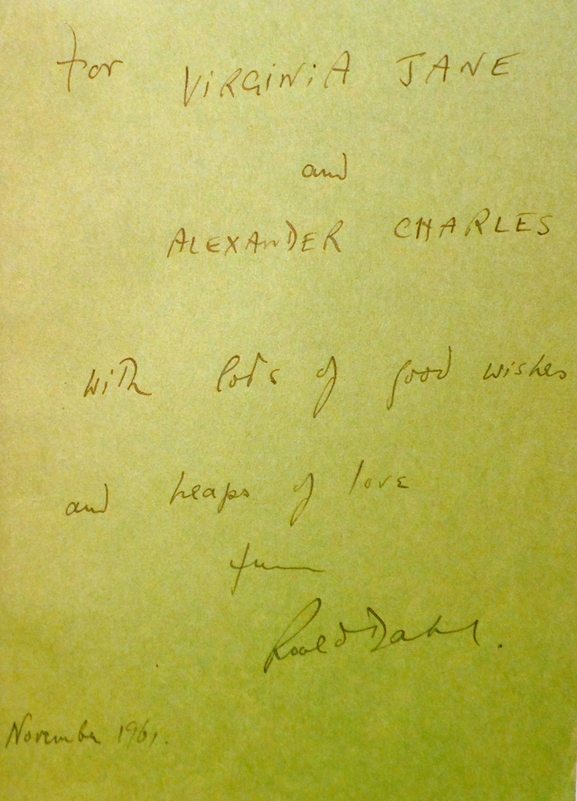 For VIRGINIA JANE
and
ALEXANDER CHARLES
with lots of good wishes
and heaps of love
from
Roald Dahl.
November 1961.